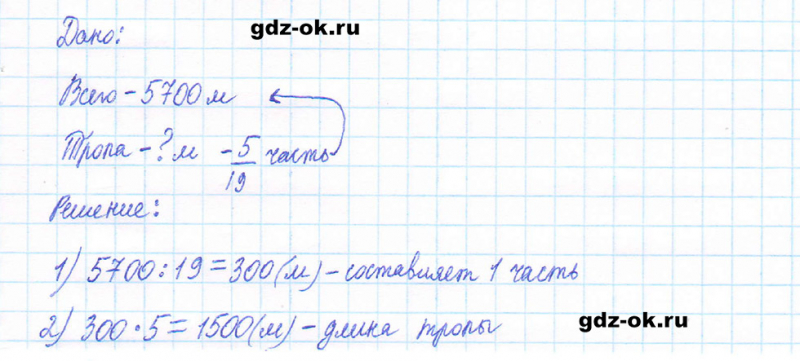 Дано: gdz-ok.ru
Всего - 5700 м
Тропа - ? м - 5/19 часть
Решение:
1) 5700:19=300(м) - составляет 1 часть
2) 300·5=1500(м) - длина тропы
gdz-ok.ru